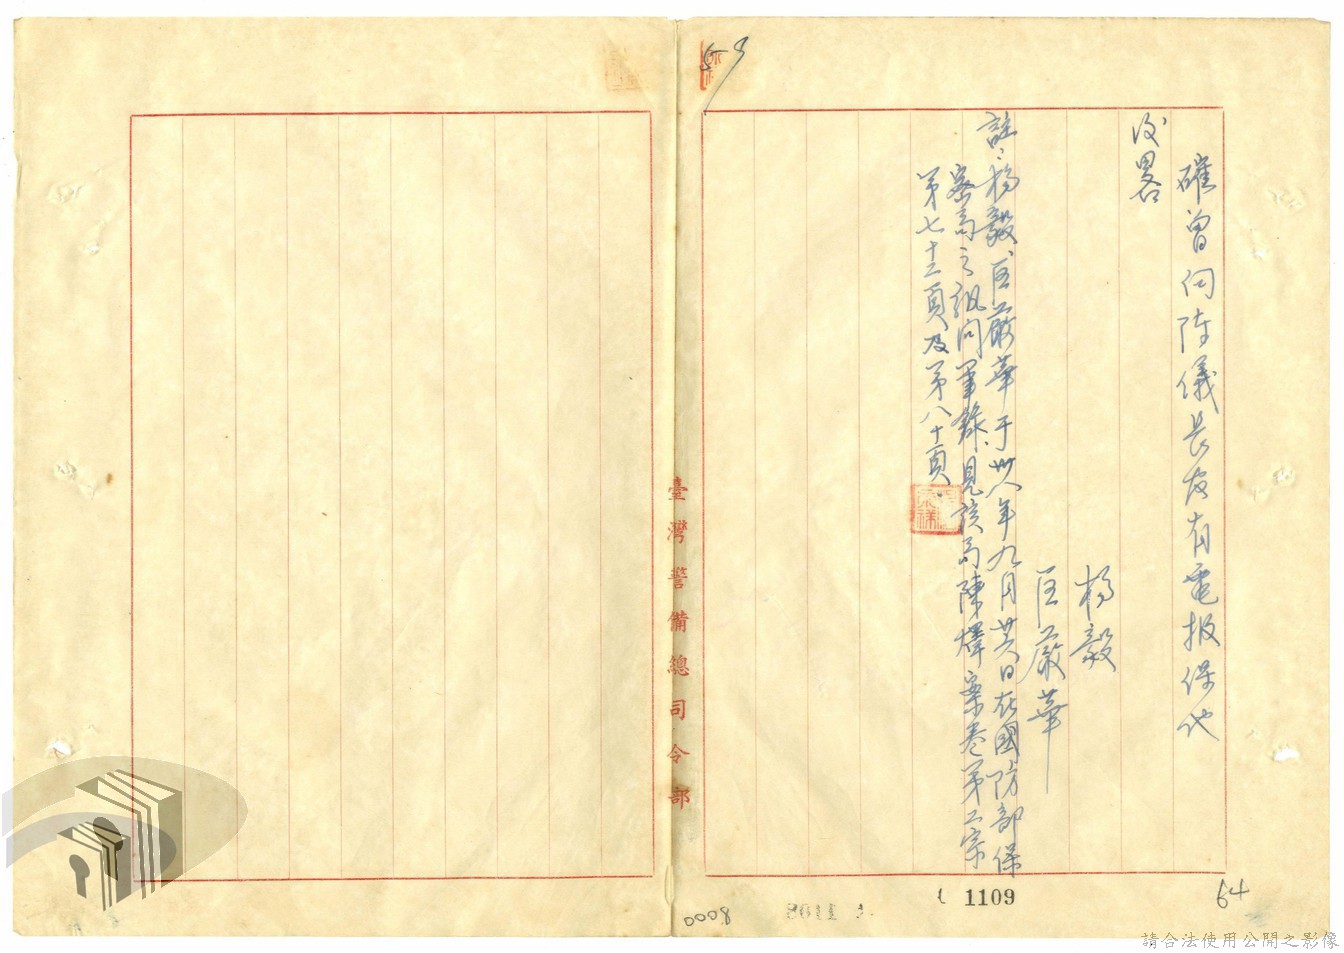 確曾向陳儀長官有電报保他
後畧
楊毅
匡嚴華
註:楊毅、匡嚴華于卅八年九月廿八日在國防部保
密局之訊问筆錄、見該局陳煇案卷第二宗
第七十二頁及第八十頁。
臺灣警備總司令部
1109
64
0008
請合法使用公開之影像